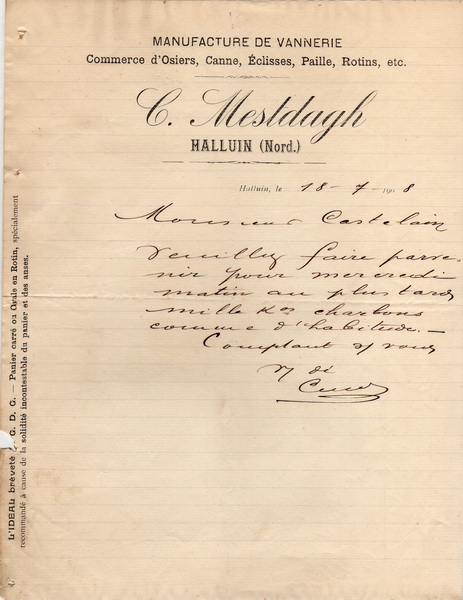 MANUFACTURE DE VANNERIE
Commerce d'Osiers, Canne, Éclisses, Paille, Rotins, etc.
C. Mestdagh
HALLUIN (Nord.)
Halluin, le 18-7-1908
Monsieur Castelain
Veuillez faire parve-
nir pour mercredi
matin au plus tard
mille Kos charbons
comme d'habitude.—
Comptant s/ vous
L'IDÉAL brèveté G. D. G. — Panier carré ou Ovale en Rotin, spécialement
recommandé à cause de la solidité incontestable du panier et des anses.